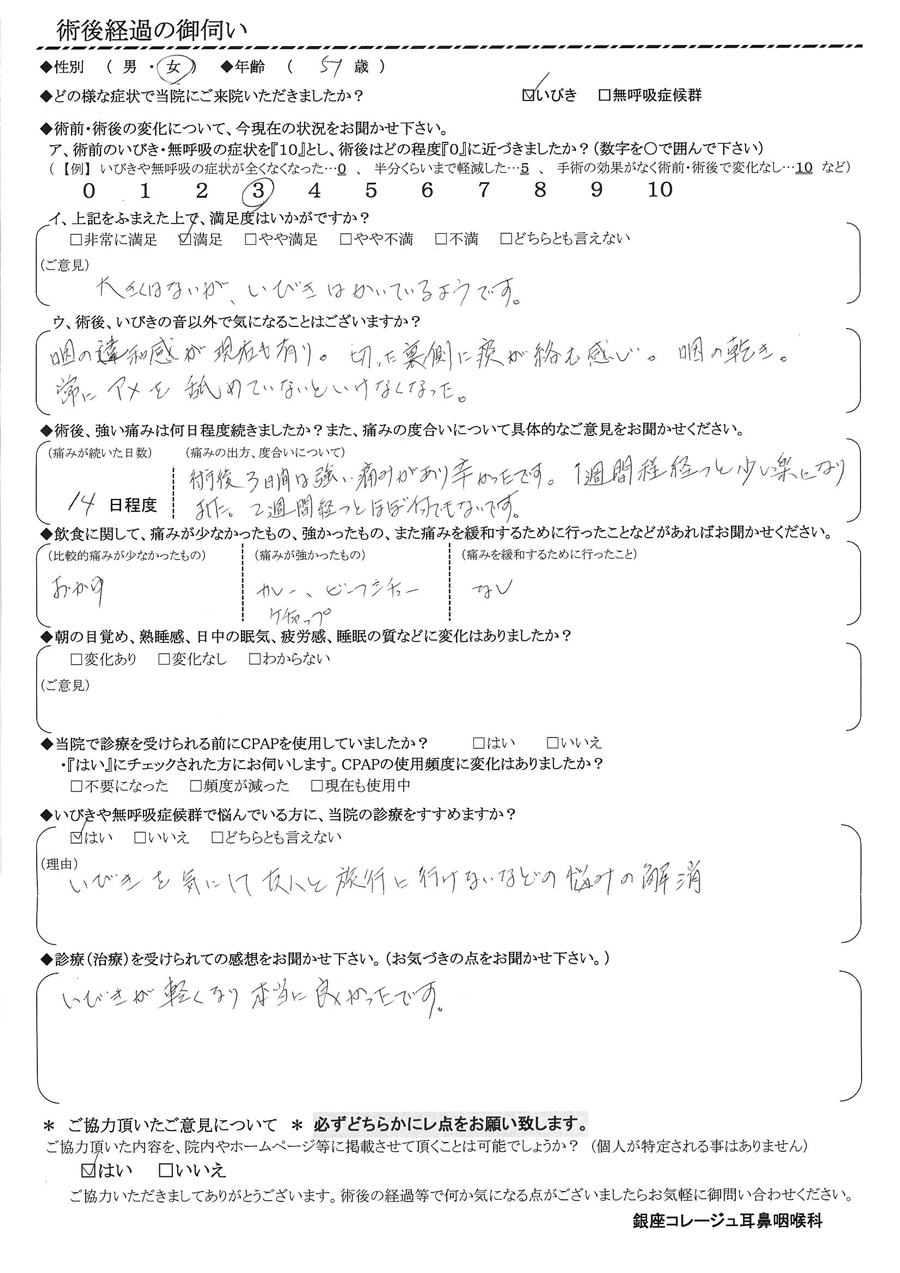 術後経過の御伺い
◆性別 ( 男 ・ 女 ) ◆年齢 ( 57 歳 )
◆どの様な症状で当院にご来院いただきましたか? ☑いびき □無呼吸症候群
◆術前・術後の変化について、今現在の状況をお聞かせ下さい。
ア、術前のいびき・無呼吸の症状を『10』とし、術後はどの程度『0』に近づきましたか?(数字を〇で囲んで下さい)
(【例】 いびきや無呼吸の症状が全くなくなった…0 、 半分くらいまで軽減した…5 、 手術の効果がなく術前・術後で変化なし…10 など)
0 1 2 3 4 5 6 7 8 9 10
イ、上記をふまえた上で、満足度はいかがですか?
□非常に満足 ☑満足 □やや満足 □やや不満 □不満 □どちらとも言えない
(ご意見)
大きくはないが、いびきはかいているようです。
ウ、術後、いびきの音以外で気になることはございますか?
咽の違和感が現在も有り。切った裏側に痰が絡む感じ。咽の乾き。
常にアメを舐めていないといけなくなった。
◆術後、強い痛みは何日程度続きましたか?また、痛みの度合いについて具体的なご意見をお聞かせください。
(痛みが続いた日数) (痛みの出方、度合いについて)
術後3日間は強い痛みがあり辛かったです。1週間程経つと少し楽になり
14 日程度 ました。2週間経つとほぼ何でもないです。
◆飲食に関して、痛みが少なかったもの、強かったもの、また痛みを緩和するために行ったことなどがあればお聞かせください。
(比較的痛みが少なかったもの) (痛みが強かったもの) (痛みを緩和するために行ったこと)
おかゆ カレー、ビーフシチュー なし
ケチャップ
◆朝の目覚め、熟睡感、日中の眠気、疲労感、睡眠の質などに変化はありましたか?
□変化あり □変化なし □わからない
(ご意見)
◆当院で診療を受けられる前にCPAPを使用していましたか? □はい □いいえ
・『はい』にチェックされた方にお伺いします。CPAPの使用頻度に変化はありましたか?
□不要になった □頻度が減った □現在も使用中
◆いびきや無呼吸症候群で悩んでいる方に、当院の診療をすすめますか?
☑はい □いいえ □どちらとも言えない
(理由)
いびきを気にして友人と旅行に行けないなどの悩みの解消
◆診療(治療)を受けられての感想をお聞かせ下さい。(お気づきの点をお聞かせ下さい。)
いびきが軽くなり本当に良かったです。
* ご協力頂いたご意見について * 必ずどちらかにレ点をお願い致します。
ご協力頂いた内容を、院内やホームページ等に掲載させて頂くことは可能でしょうか? (個人が特定される事はありません)
☑はい □いいえ
ご協力いただきましてありがとうございます。術後の経過等で何か気になる点がございましたらお気軽に御問い合わせください。
銀座コレージュ耳鼻咽喉科